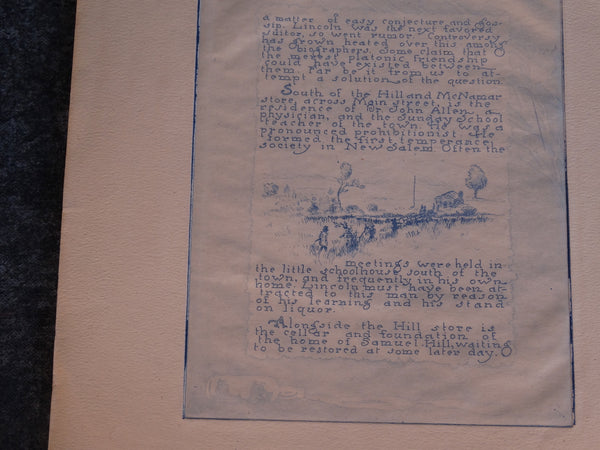 a matter of easy conjecture and gos-
sip. Lincoln was the next favored
suitor, so went rumor. Controversy
has grown heated over this among
the biographers. Some claim that
the merest platonic friendship
could have existed between
them. Far be it from us to at-
tempt a solution of the question.
South of the Hill and McNamar
store, across Main street, is the
residence of Dr. John Allen, a
physician, and the Sunday School
teacher of the town. He was a
pronounced prohibitionist. He
formed the first temperance
society in New Salem. Often the
meetings were held in
the little schoolhouse south of the
town, and frequently in his own
home. Lincoln must have been at-
tracted to this man by reason
of his learning and his stand
on liquor.
Alongside the Hill store is
the cellar and foundation of
the home of Samuel Hill, waiting
to be restored at some later day.